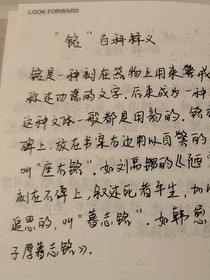 LOOK FORWARD
"铭"百科释义
铭是一种刻在器物上用来警戒
称述功德的文字，后来成为一种
这种文体一般都是用韵的。铭
碑上，放在书案右边用以自警的
叫"座右铭"。如刘禹锡的《陋
刻在石碑上，叙述死者生平，加以
追思的，叫"墓志铭"。如韩愈
子厚墓志铭》。